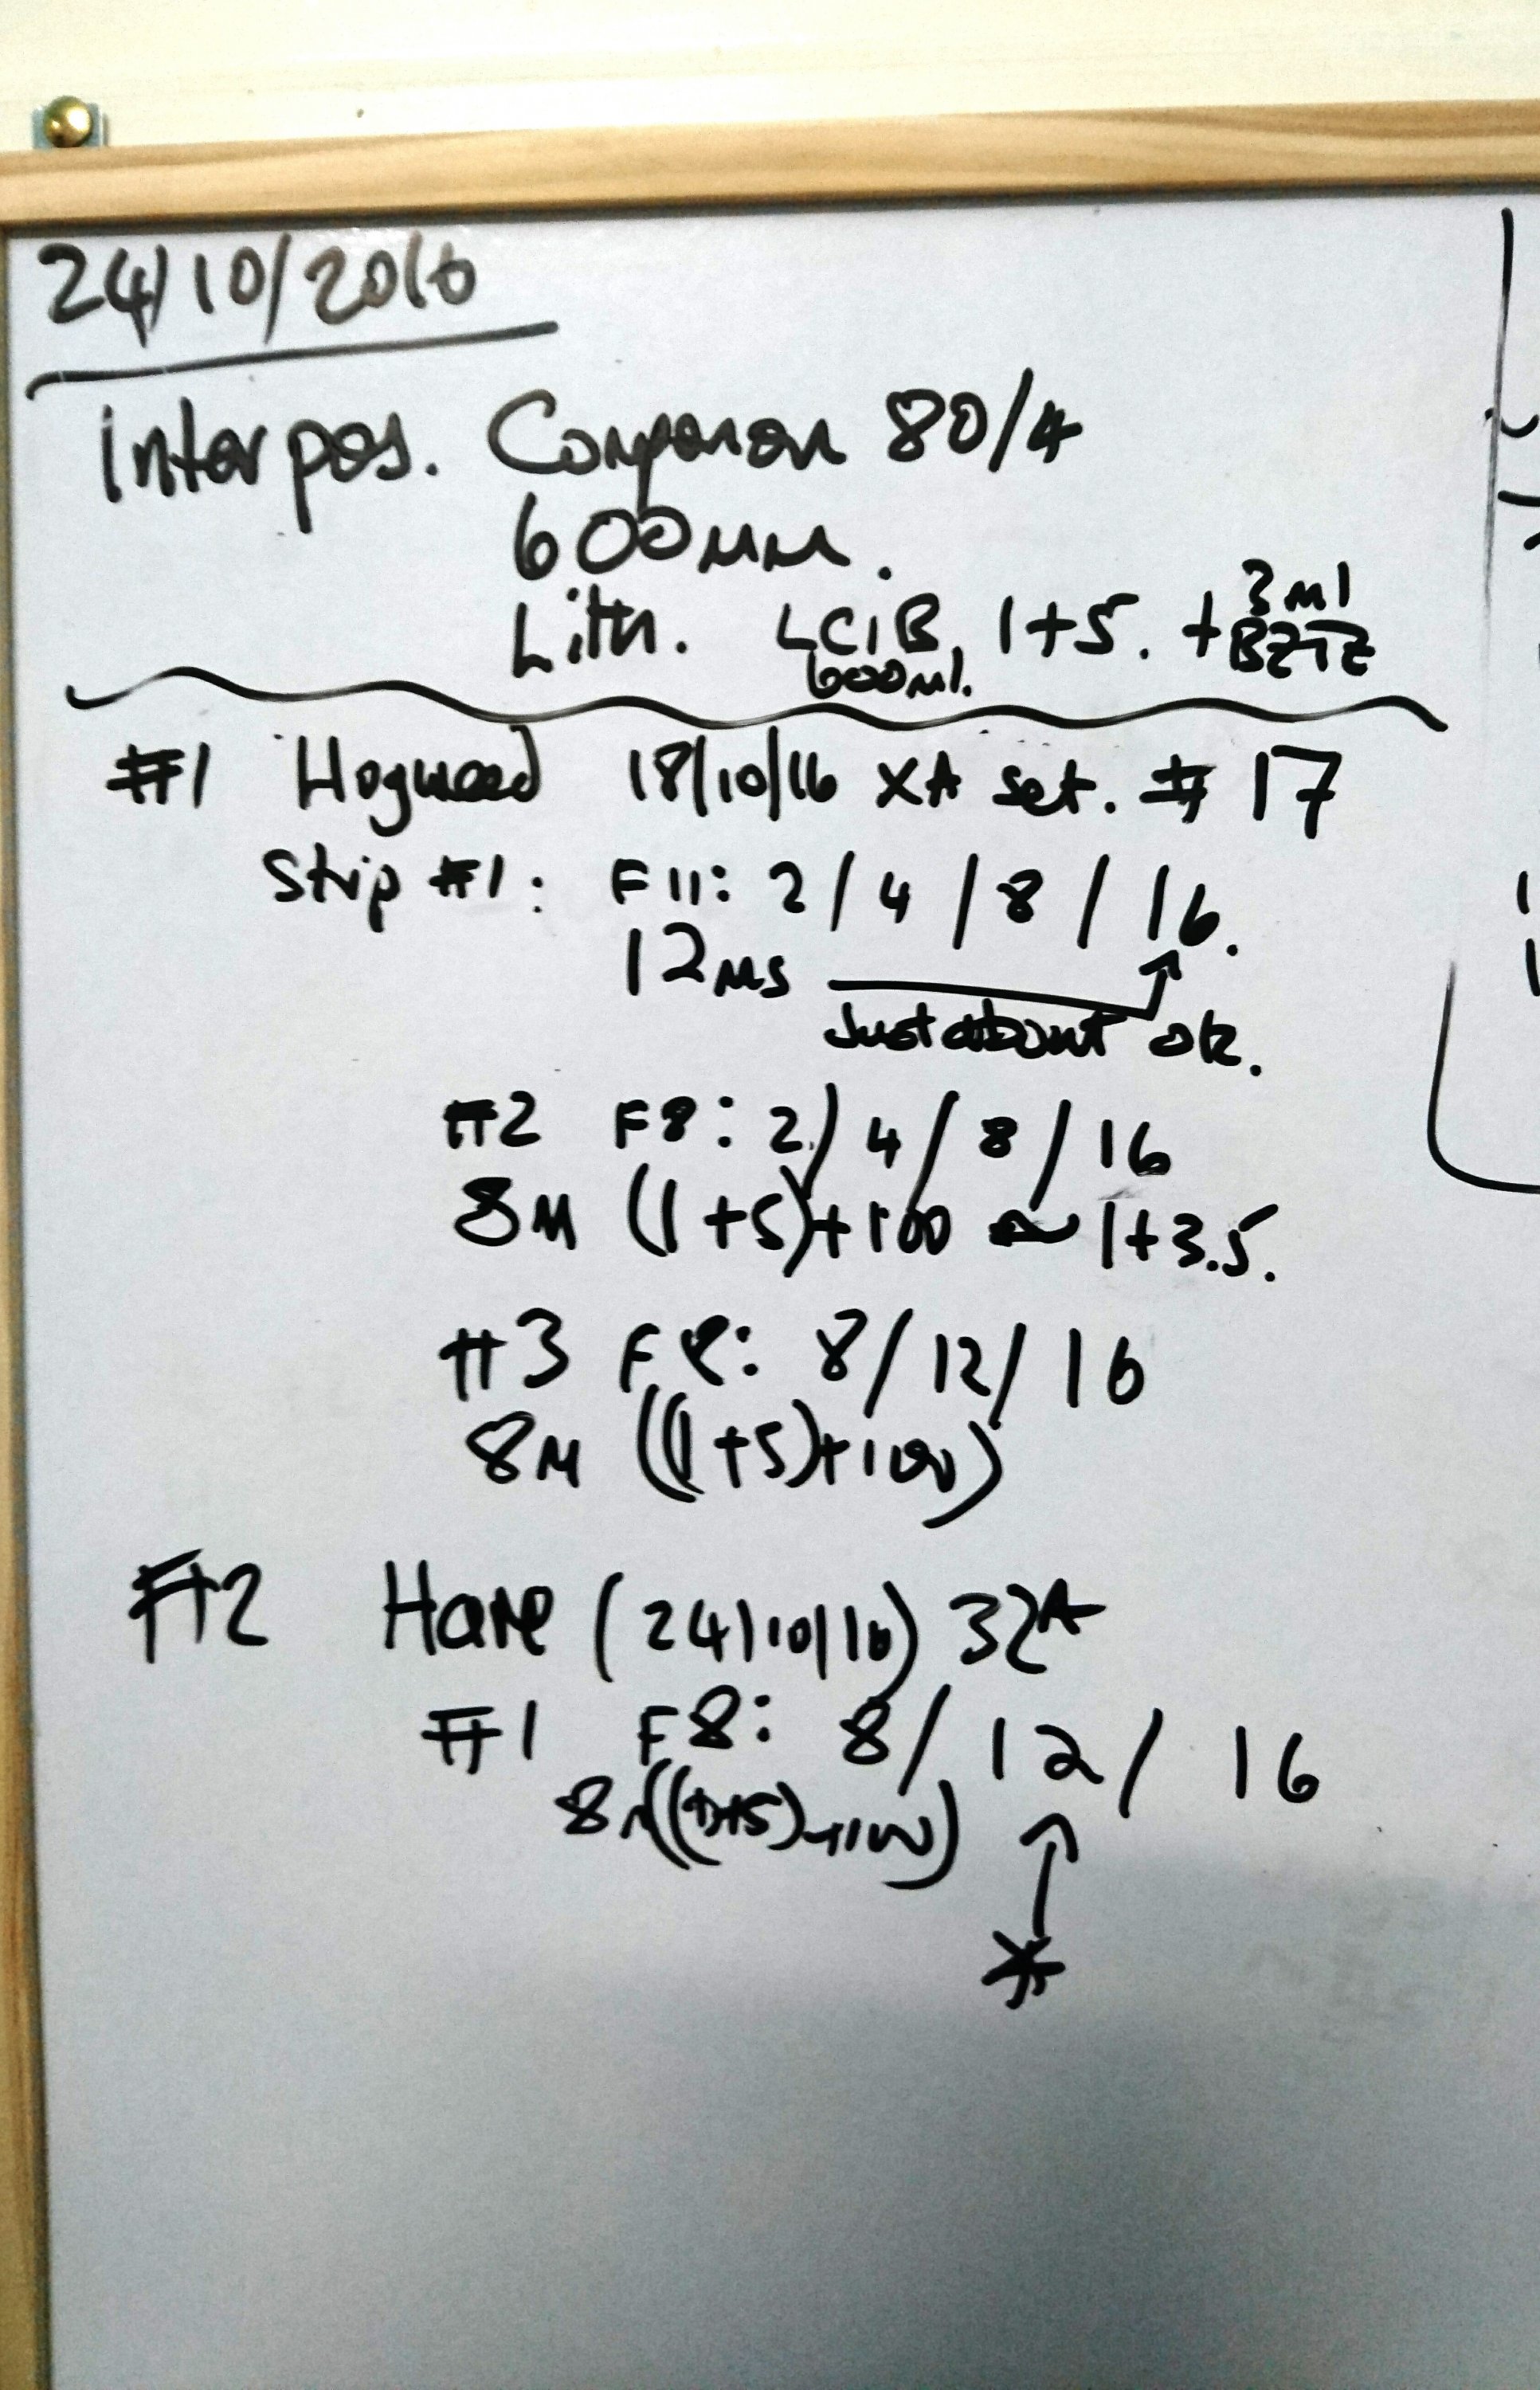 24/10/2016
interpos. Componon 80/4
600mm.
Lith. LCIB, 1+5. + 3ml BZTZ
600ml.
#1 Hogweed 18/10/16 XA set. # 17
Strip #1: F11: 2/4/8/16.
12ms
Just about ok.
#2 F8: 2/4/8/16
8M (1+5)+100 ~ 1+3.5.
#3 F8: 8/12/16
8M ((1+5)+100)
#2 Hare (24/10/16) 32A
#1 F8: 8/12/16
8M((1+5)+100)
*